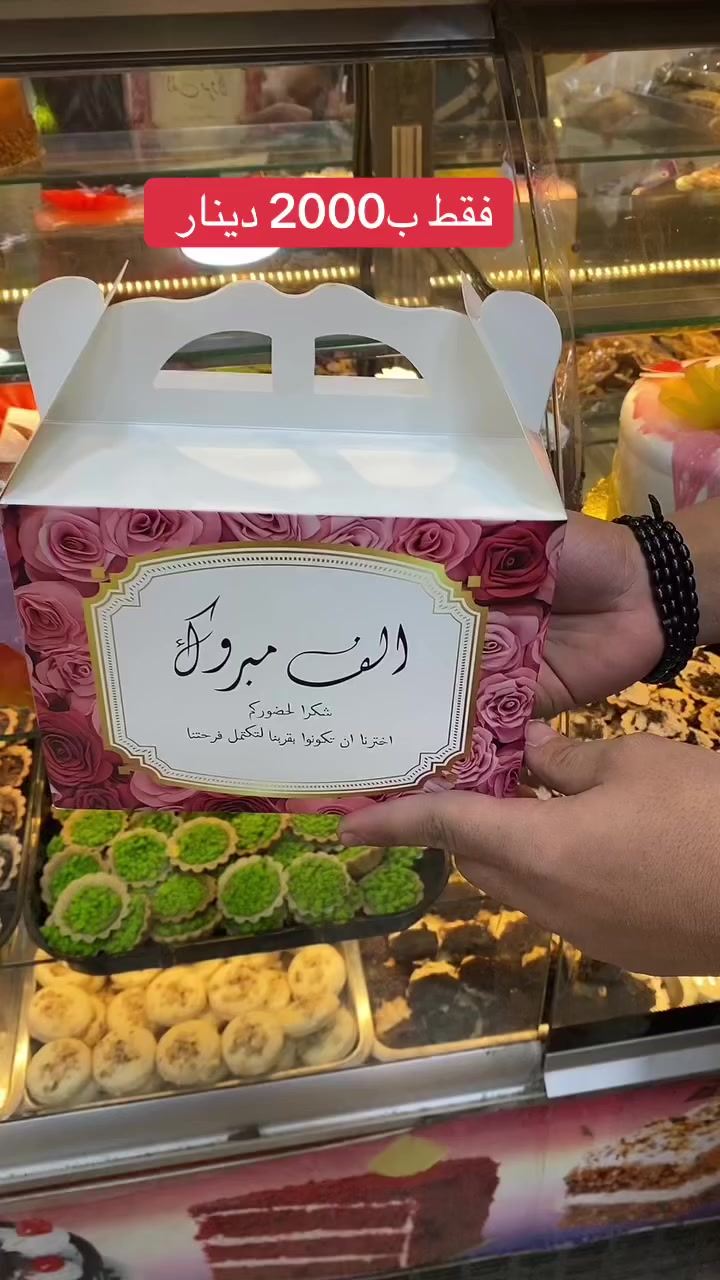 فقط ب2000 دينار
الف مبروك
شكرا لحضوركم
اخترنا ان تكونوا بقربنا لتكتمل فرحتنا